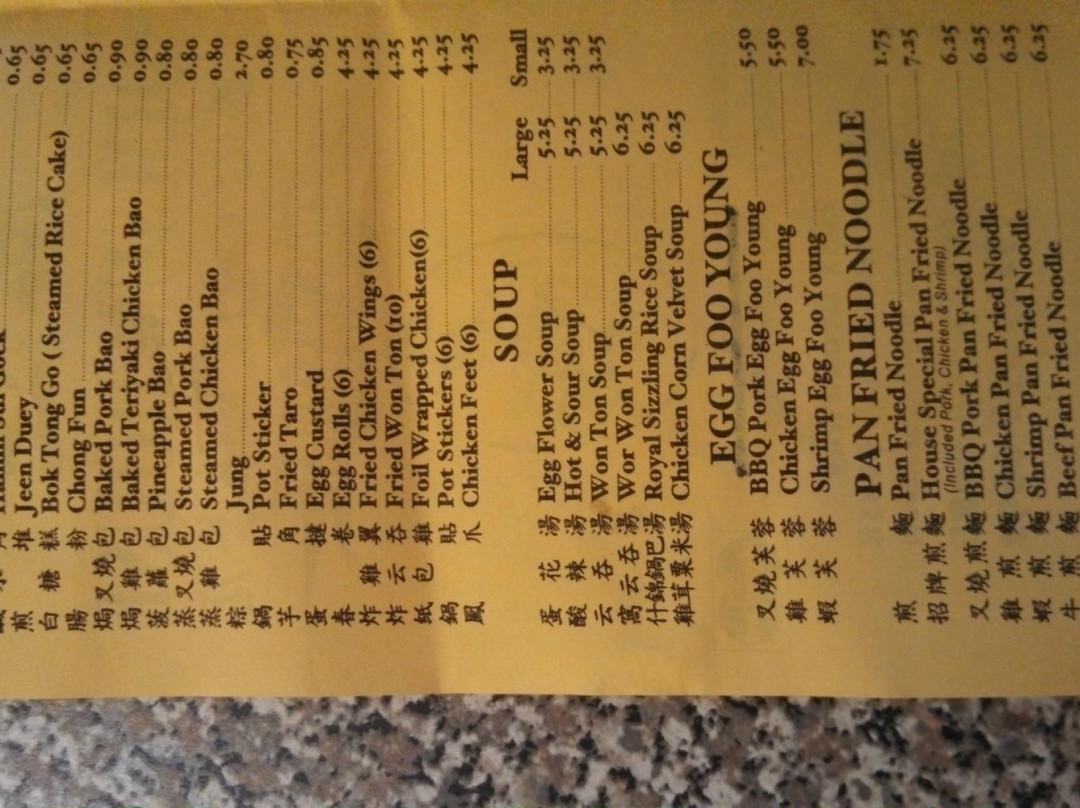 0.65
煎堆 Jeen Duey 0.65
白糖糕 Bok Tong Go ( Steamed Rice Cake) 0.65
腸粉 Chong Fun 0.65
焗叉燒包 Baked Pork Bao 0.90
焗雞包 Baked Teriyaki Chicken Bao 0.90
菠蘿包 Pineapple Bao 0.80
蒸叉燒包 Steamed Pork Bao 0.80
蒸雞包 Steamed Chicken Bao 0.80
粽 Jung 2.70
鍋貼 Pot Sticker 0.80
芋角 Fried Taro 0.75
蛋撻 Egg Custard 0.85
春卷 Egg Rolls (6) 4.25
炸雞翼 Fried Chicken Wings (6) 4.25
炸云吞 Fried Won Ton (10) 4.25
紙包雞 Foil Wrapped Chicken(6) 4.25
鍋貼 Pot Stickers (6) 4.25
鳳爪 Chicken Feet (6) 4.25
SOUP Large Small
蛋花湯 Egg Flower Soup 5.25 3.25
酸辣湯 Hot & Sour Soup 5.25 3.25
云吞湯 Won Ton Soup 5.25 3.25
窩云吞湯 Wor Won Ton Soup 6.25
什錦鍋巴湯 Royal Sizzling Rice Soup 6.25
雞茸粟米湯 Chicken Corn Velvet Soup 6.25
EGG FOO YOUNG
叉燒芙蓉 BBQ Pork Egg Foo Young 5.50
雞芙蓉 Chicken Egg Foo Young 5.50
蝦芙蓉 Shrimp Egg Foo Young 7.00
PAN FRIED NOODLE
煎麵 Pan Fried Noodle 1.75
招牌煎麵 House Special Pan Fried Noodle 7.25
(Included Pork, Chicken & Shrimp)
叉燒煎麵 BBQ Pork Pan Fried Noodle 6.25
雞煎麵 Chicken Pan Fried Noodle 6.25
蝦煎麵 Shrimp Pan Fried Noodle 6.25
牛煎麵 Beef Pan Fried Noodle 6.25